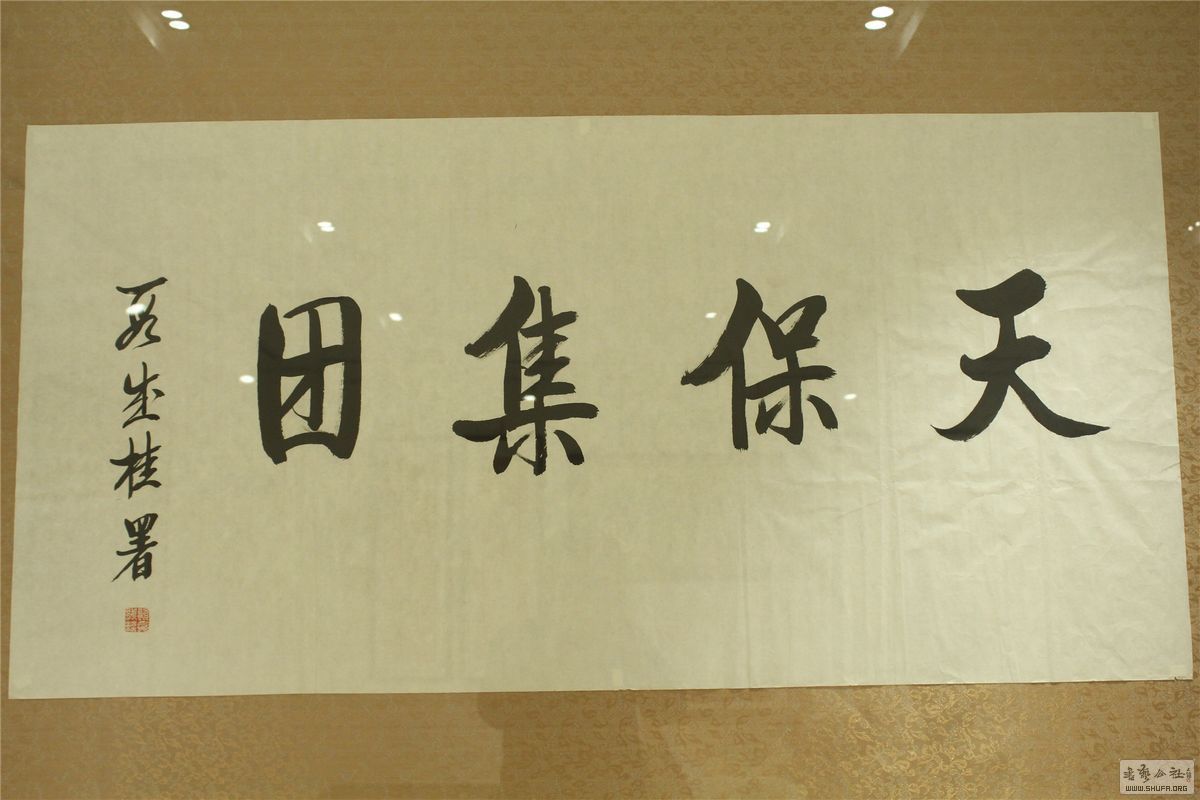 天保集团
成桂署
書藝公社
WWW.SHUFA.ORG